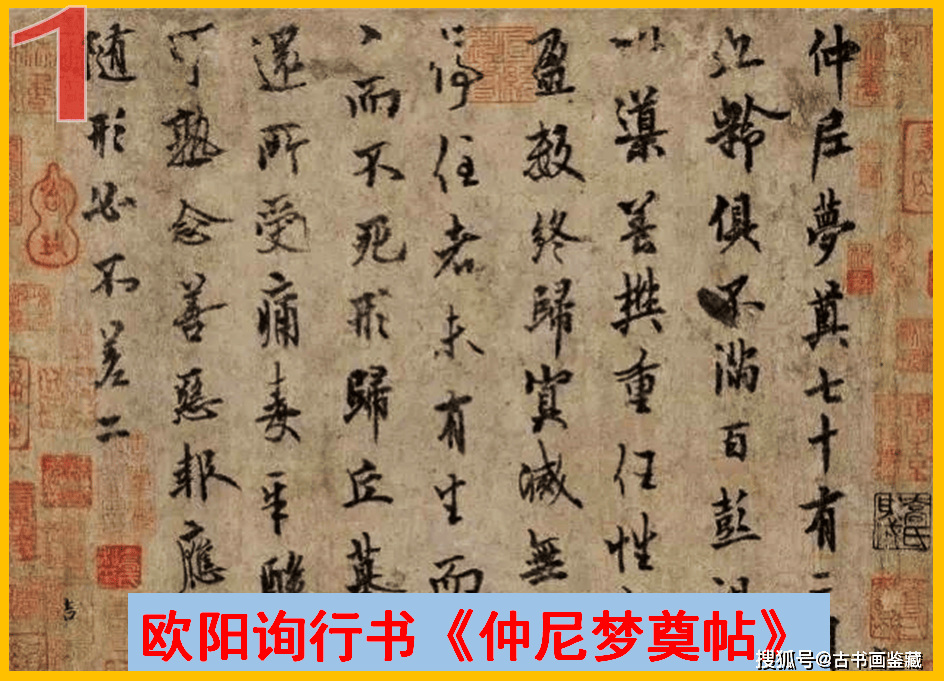 1
仲尼夢奠七十有二
齡俱不滿百彭
導養樊重任性
盈數終歸冥滅無
停住者未有生而
而不死形歸丘墓
還所受痛毒辛酸
可熟念善惡報應
隨形必不差二
欧阳询行书《仲尼梦奠帖》
搜狐号@古书画鉴藏